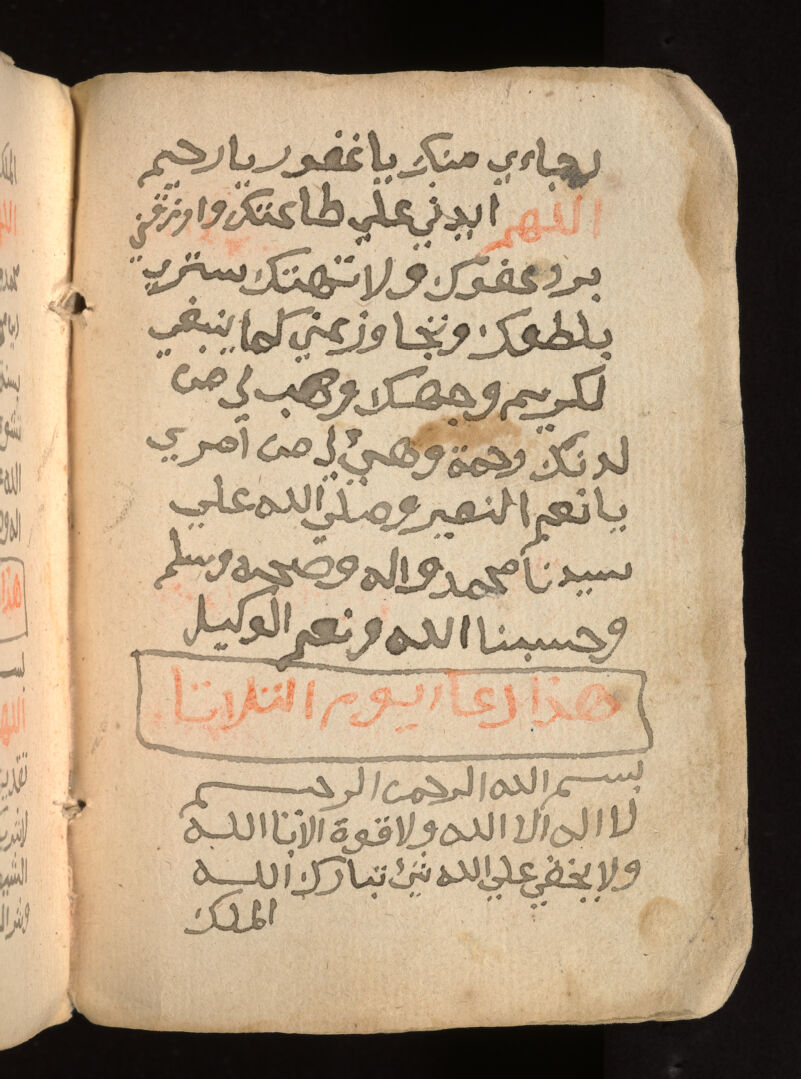 رجاءي منك يا غفور يا رحيم
اللهم ايدني علي طاعتك وارزقني
برد عفوك ولا تهتك ستري
بلطفك وتجاوز عني كما ينبغي
لكريم وجهك وهب لي من
لدنك رحمة وهيئ لي من امري
يا نعم النصير وصلي الله علي
سيدنا محمد واله وصحبه وسلم
وحسبنا الله ونعم الوكيل
هذا دعا يوم الثلاثا
بسم الله الرحمن الرحيم
لا اله الا الله ولا قوة الا بالله
ولا يخفي علي الله شئ تبارك الله
الملك